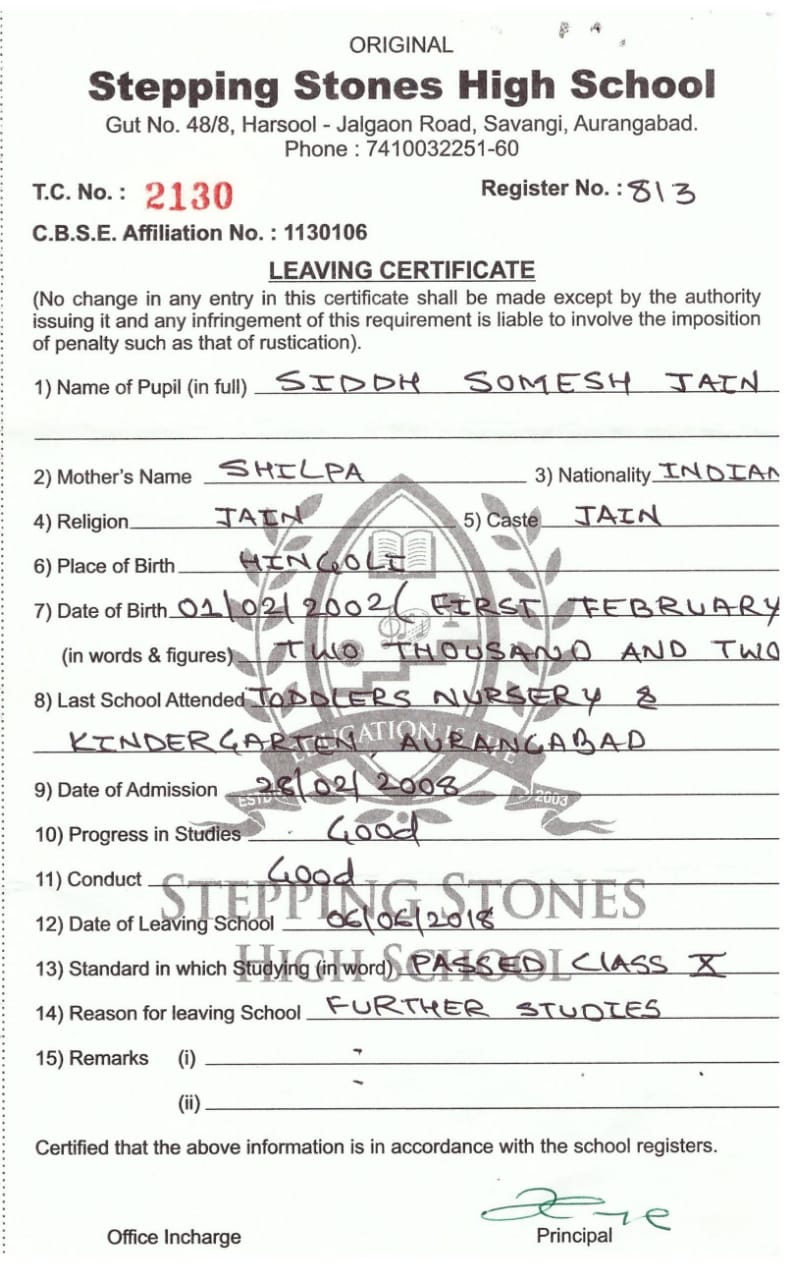 ORIGINAL
Stepping Stones High School
Gut No. 48/8, Harsool - Jalgaon Road, Savangi, Aurangabad.
Phone : 7410032251-60
T.C. No. : 2130 Register No. : 813
C.B.S.E. Affiliation No. : 1130106
LEAVING CERTIFICATE
(No change in any entry in this certificate shall be made except by the authority
issuing it and any infringement of this requirement is liable to involve the imposition
of penalty such as that of rustication).
1) Name of Pupil (in full) SIDDH SOMESH JAIN
2) Mother's Name SHILPA 3) Nationality INDIAN
4) Religion JAIN 5) Caste JAIN
6) Place of Birth HINGOLI
7) Date of Birth 01/02/2002 ( FIRST FEBRUARY
(in words & figures) TWO THOUSAND AND TWO
8) Last School Attended TODDLERS NURSERY &
KINDERGARTEN, AURANGABAD
EDUCATION IS LIFE
9) Date of Admission 28/02/2008
ESTD 2003
10) Progress in Studies Good
11) Conduct Good
STEPPING STONES
12) Date of Leaving School 06/06/2018
HIGH SCHOOL
13) Standard in which Studying (in word) PASSED CLASS X
14) Reason for leaving School FURTHER STUDIES
15) Remarks (i) -
(ii) -
Certified that the above information is in accordance with the school registers.
Office Incharge Principal